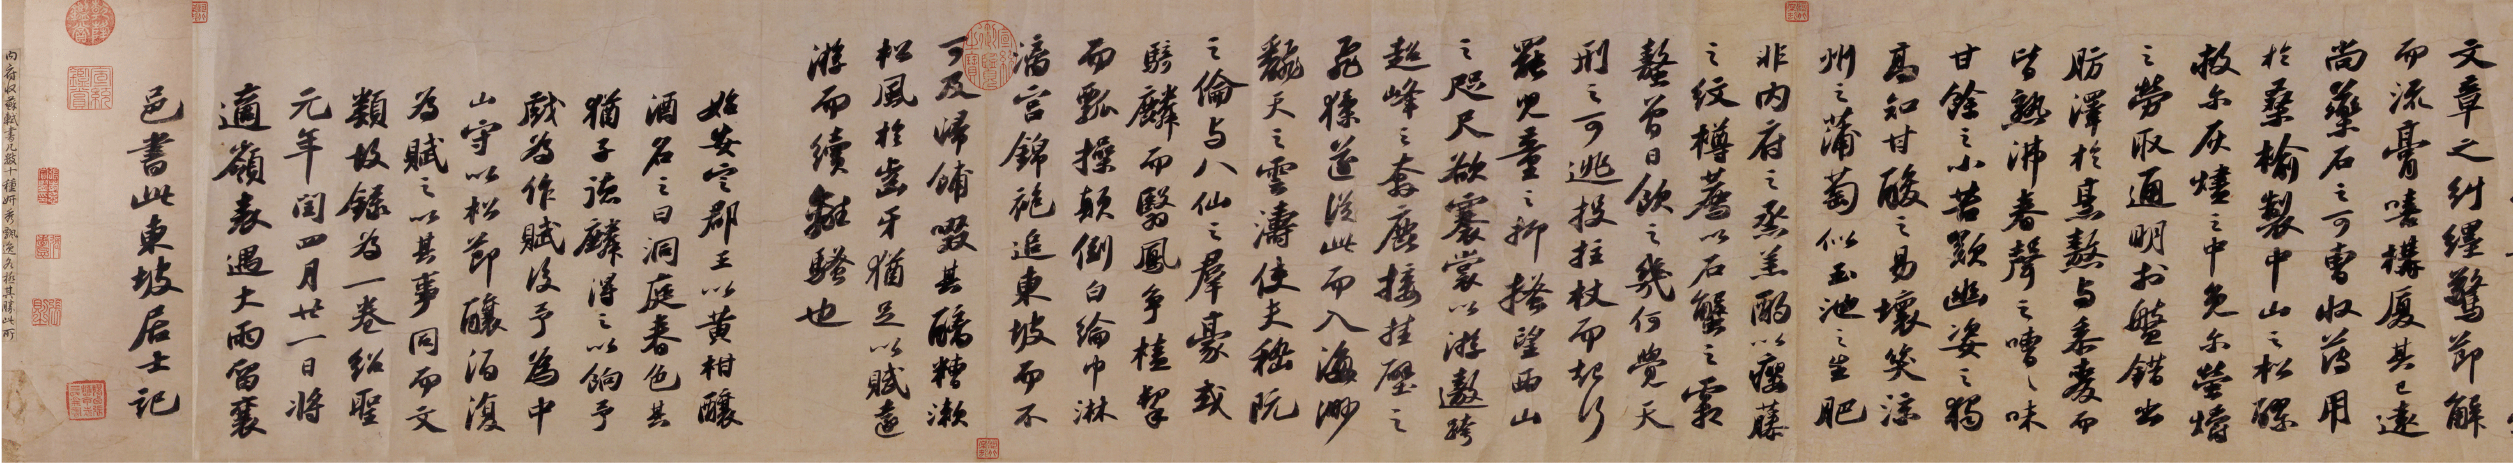 文章之糾纆驚節解
而流膏嘻構厦其已遠
尚藥石之可曹收薄用
於桑榆製中山之松醪
救尔灰燼之中免尔螢爝
之勞取通明於盤錯出
肪澤於烹熬与黍麥而
皆熟沸舂聲之嘈々味
甘餘之小苦歎幽姿之獨
高知甘酸之易壞笑涼
州之蒲萄似玉池之生肥
非内府之烝羔酌以癭藤
之紋樽薦以石蟹之霜
螯曾日飲之幾何覺天
刑之可逃投拄杖而起行
罷兒童之抑搔望西山
之咫尺欲褰裳以游遨跨
超峰之奔鹿接挂壁之
飛猱遂從此而入海渺
翻天之雲濤使夫嵇阮
之倫与八仙之羣豪或
騎麟而翳鳳爭榼挈
而瓢操顛倒白綸巾淋
漓宮錦袍追東坡而不
可及歸餔歠其醨糟漱
松風於齒牙猶足以賦遠
游而續離騷也
始安定郡王以黄柑釀
酒名之曰洞庭春色其
猶子德麟得之以餉予
戲為作賦後予為中
山守以松節釀酒復
為賦之以其事同而文
類故錄為一卷紹聖
元年閏四月廿一日將
適嶺表遇大雨留襄
邑書此東坡居士記
宣統御覽之寶
乾隆鑑賞
宣統鑑賞
內府收蘇軾書凡數十種妍秀飄逸各極其勝此所